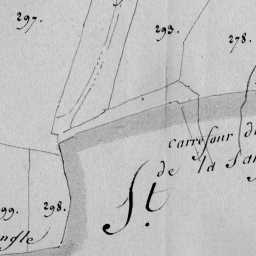 297.
293.
278.
carrefour d
de la
St.
99.
298.
ngle